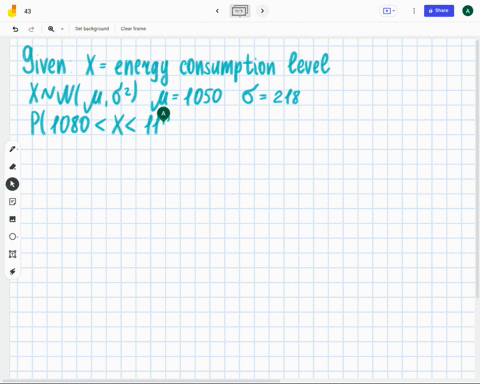 43
Share
A
Set background
Clear frame
Given: X = energy consumption level
X ~ N(μ, σ²) μ = 1050 σ = 218
A
P(1080 < X < 11